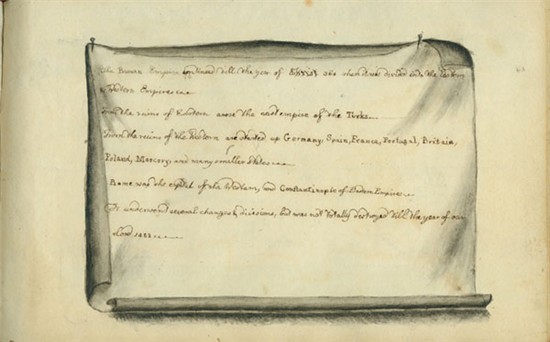 The Roman Empire continued till the year of when it was divided into the Eastern
& Western Empires
From the ruins of Eastern arose the vast empire of the Turks
From the ruins of the Western are started up Germany, Spain, France, Portugal, Britain,
Poland, Moscovy and many smaller States
Rome was the capital of the Western, and Constantinople of Eastern Empire
It underwent several changes & divisions, but was not totally destroyed till the year of our
Lord